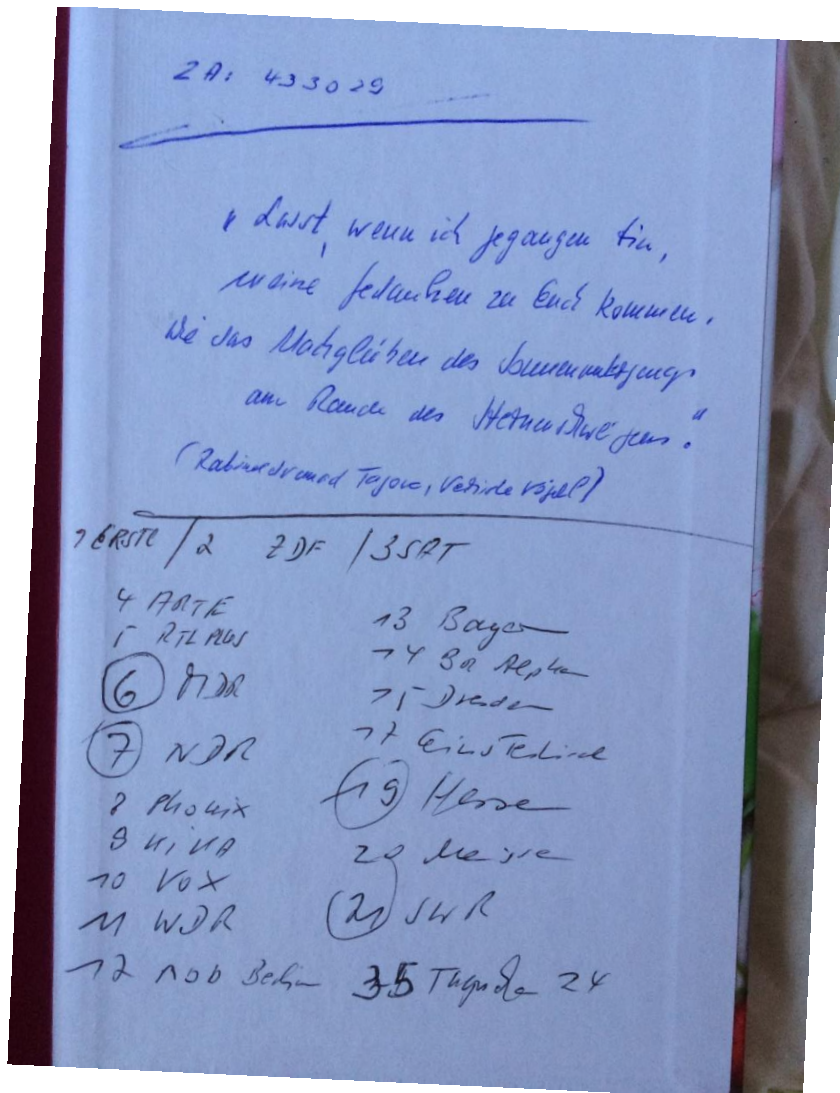 ZA: 433029
"Lasst, wenn ich gegangen bin,
meine Gedanken zu Ende kommen.
Wie das Nachglühen des Sonnenuntergangs
am Rande des Sternenschweigens."
(Rabindranath Tagore, Verirrte Vögel)
1 ERSTE / 2 ZDF / 3SAT
4 ARTE
5 RTL PLUS
6 MDR
7 NDR
8 Phönix
9 KiKA
10 VOX
11 WDR
12 RBB Berlin
13 Bayern
14 BR Alpha
15 Dresden
17 Einsfestival
19 Hessen
20
21 SWR
35 Tagesschau 24